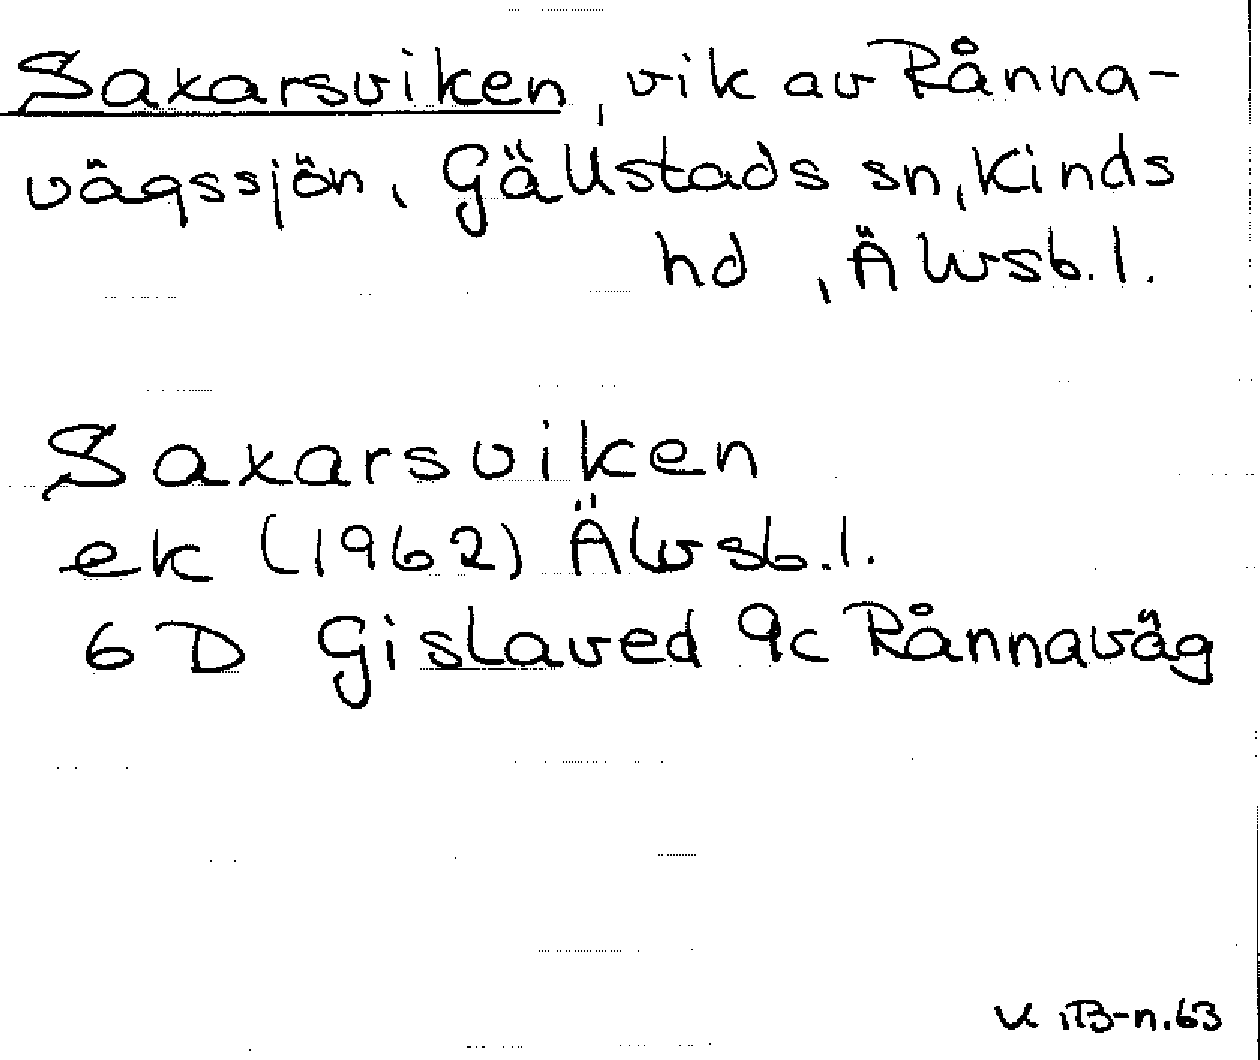 Saxarsviken, vik av Rånna-
vägssjön, Gällstads sn, Kinds
hd, Älvsb. l.
Saxarsviken
ek (1962) Älvsb. l.
6 D Gislaved 9c Rånnaväg
-n. 63